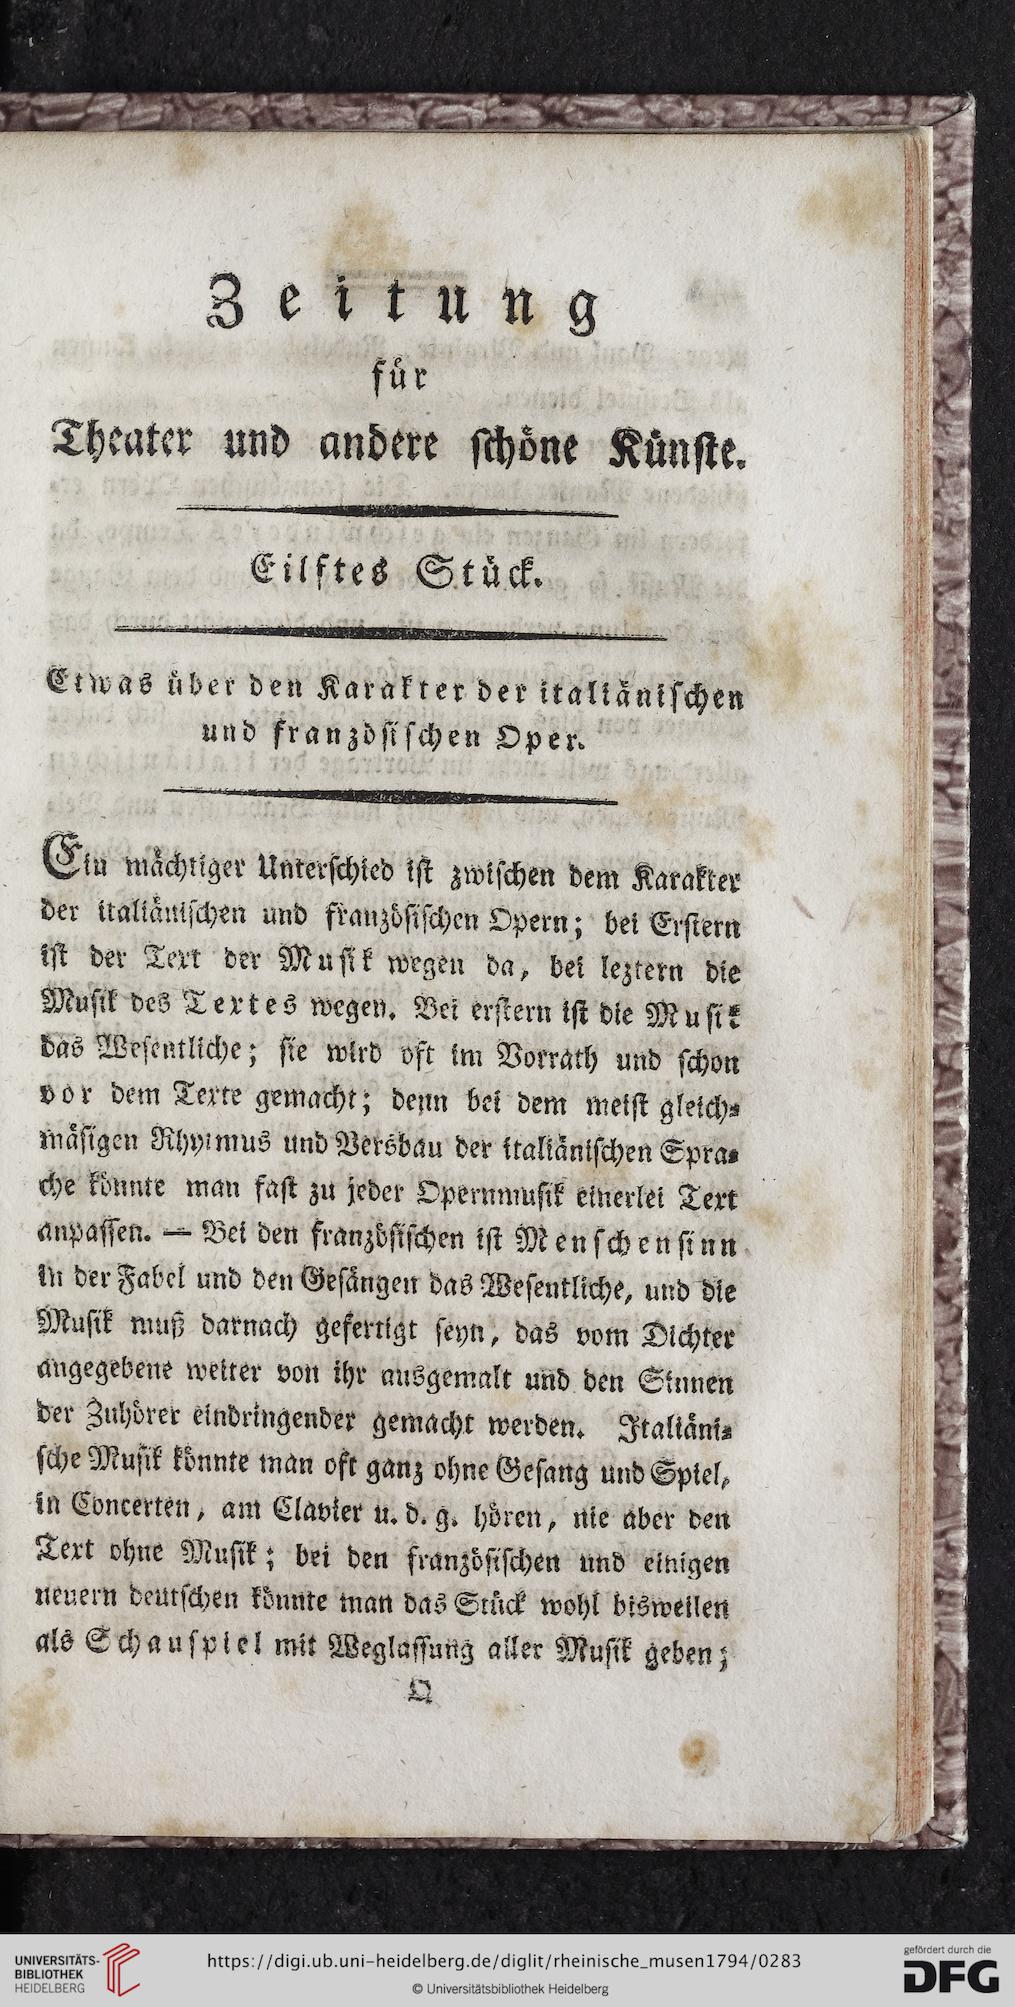 Zeitung
für
Theater und andere schöne Künste.
Eilftes Stück.
Etwas über den Karakter der italiänischen
und französischen Oper.
Ein mächtiger Unterschied ist zwischen dem Karakter
der italiänischen und französischen Opern; bei Erstern
ist der Text der Musik wegen da, bei leztern die
Musik des Textes wegen. Bei erstern ist die Musik
das Wesentliche; sie wird oft im Vorrath und schon
vor dem Texte gemacht; denn bei dem meist gleich-
mäsigen Rhytmus und Versbau der italiänischen Spra-
che könnte man fast zu jeder Opernmusik einerlei Text
anpassen. — Bei den französischen ist Menschensinn
in der Fabel und den Gesängen das Wesentliche, und die
Musik muß darnach gefertigt seyn, das vom Dichter
angegebene weiter von ihr ausgemalt und den Sinnen
der Zuhörer eindringender gemacht werden. Italiäni-
sche Musik könnte man oft ganz ohne Gesang und Spiel,
in Concerten, am Clavier u. d. g. hören, nie aber den
Text ohne Musik; bei den französischen und einigen
neuern deutschen könnte man das Stück wohl bisweilen
als Schauspiel mit Weglassung aller Musik geben;
Q
UNIVERSITÄTS-
BIBLIOTHEK
HEIDELBERG
https://digi.ub.uni-heidelberg.de/diglit/rheinische_musen1794/0283
© Universitätsbibliothek Heidelberg
gefördert durch die
DFG